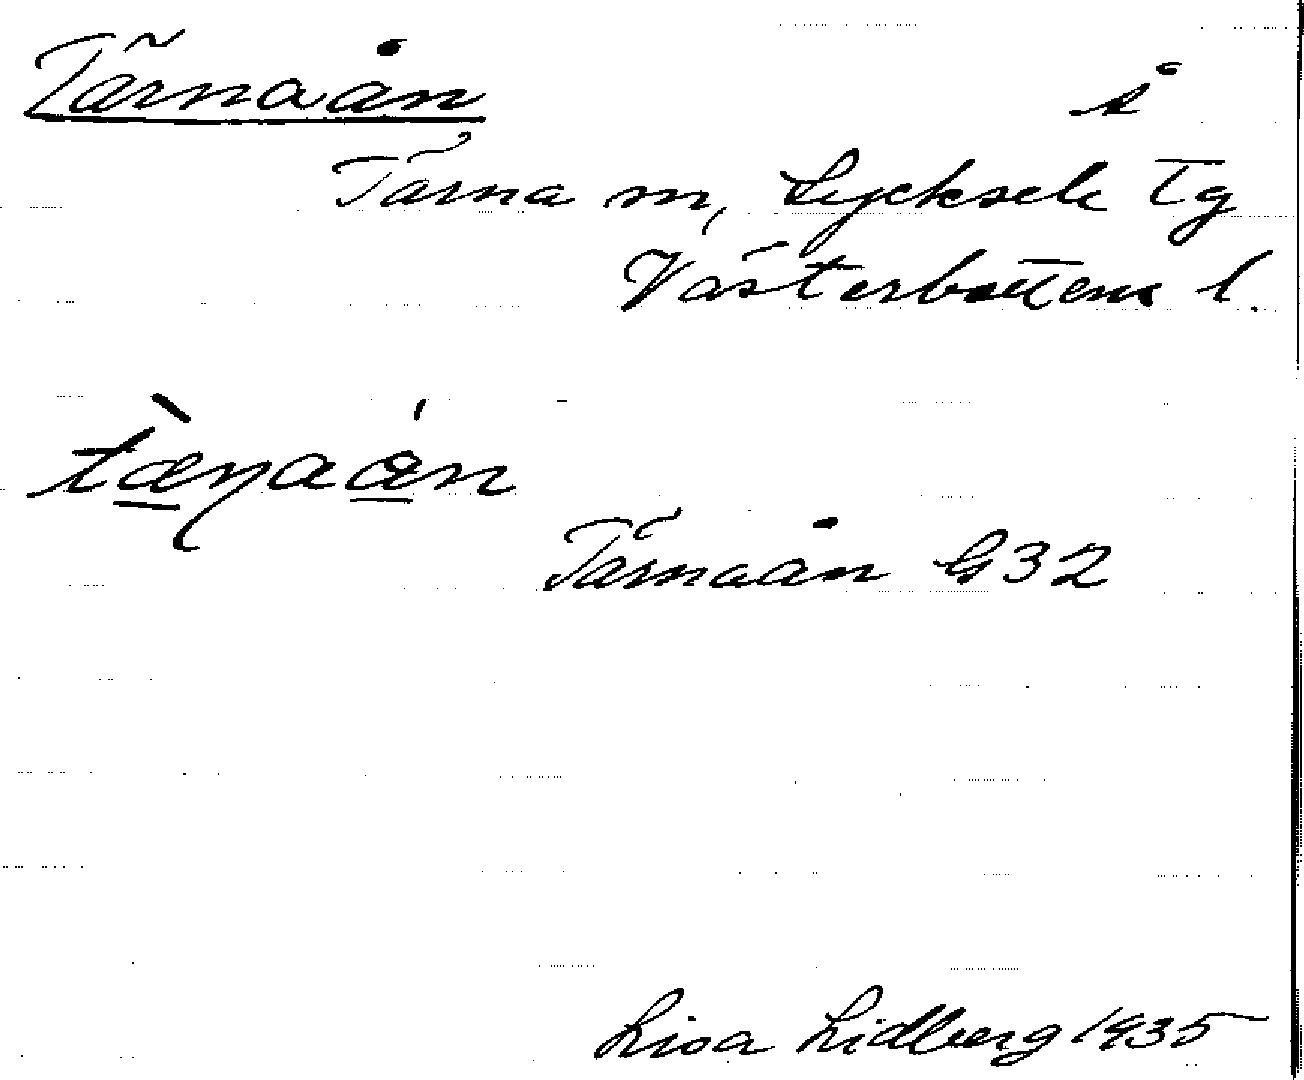 Tärnaån å
Tärna sn, Lycksele tg
Västerbottens l.
tæ̀ɳaån
Tärnaån G32
Lisa Lidberg 1935